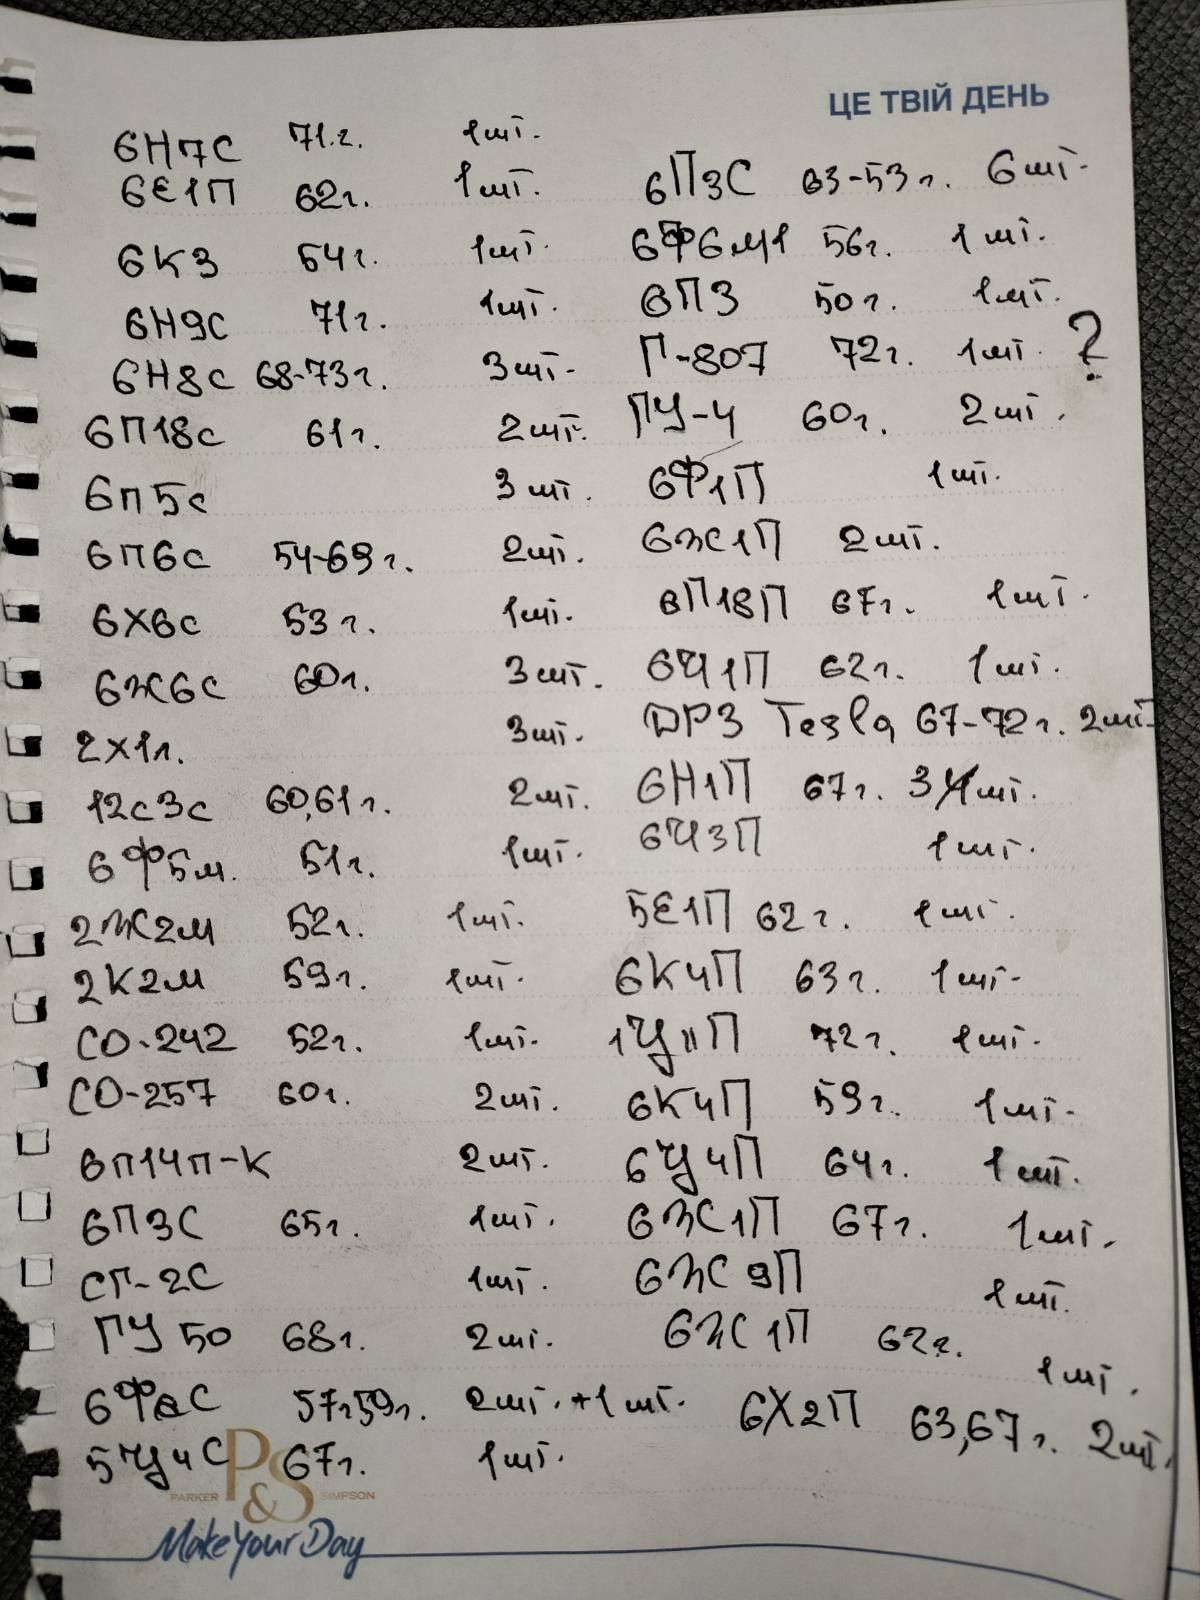 ЦЕ ТВІЙ ДЕНЬ
6Н7С 71.г. 1шт.
6Е1П 62г. 1шт.
6К3 54г. 1шт.
6Н9С 71г. 1шт.
6Н8С 68-73г. 3шт.
6П18С 61г. 2шт.
6П5С 3шт.
6П6С 54-69г. 2шт.
6Х6С 53г. 1шт.
6Ж6С 60г. 3шт.
2Х1л. 3шт.
12С3С 60,61г. 2шт.
6Ф5м. 51г. 1шт.
2Ж2М 52г. 1шт.
2К2М 59г. 1шт.
СО-242 52г. 1шт.
СО-257 60г. 2шт.
6П14П-К 2шт.
6П3С 65г. 1шт.
СГ-2С 1шт.
ГУ50 68г. 2шт.
57г59г. 2шт. +1шт.
5Ц4С 67г. 1шт.
6П3С 63-53г. 6шт.
6Ф6М1 56г. 1шт.
6П3 50г. 1шт.
Г-807 72г. 1шт. ?
ГУ-4 60г. 2шт.
6Ф1П 1шт.
6Ж1П 2шт.
6П18П 67г. 1шт.
6И1П 62г. 1шт.
Tesla 67-72г. 2шт.
6Н1П 67г. 3шт.
6И3П 1шт.
5Е1П 62г. 1шт.
6К4П 63г. 1шт.
1Ц11П 72г. 1шт.
6К4П 59г. 1шт.
6Ц4П 64г. 1шт.
6Ж1П 67г. 1шт.
6Ж9П 1шт.
6Ж1П 62г. 1шт.
6Х2П 63,67г. 2шт.
P&S
PARKER SIMPSON
Make Your Day